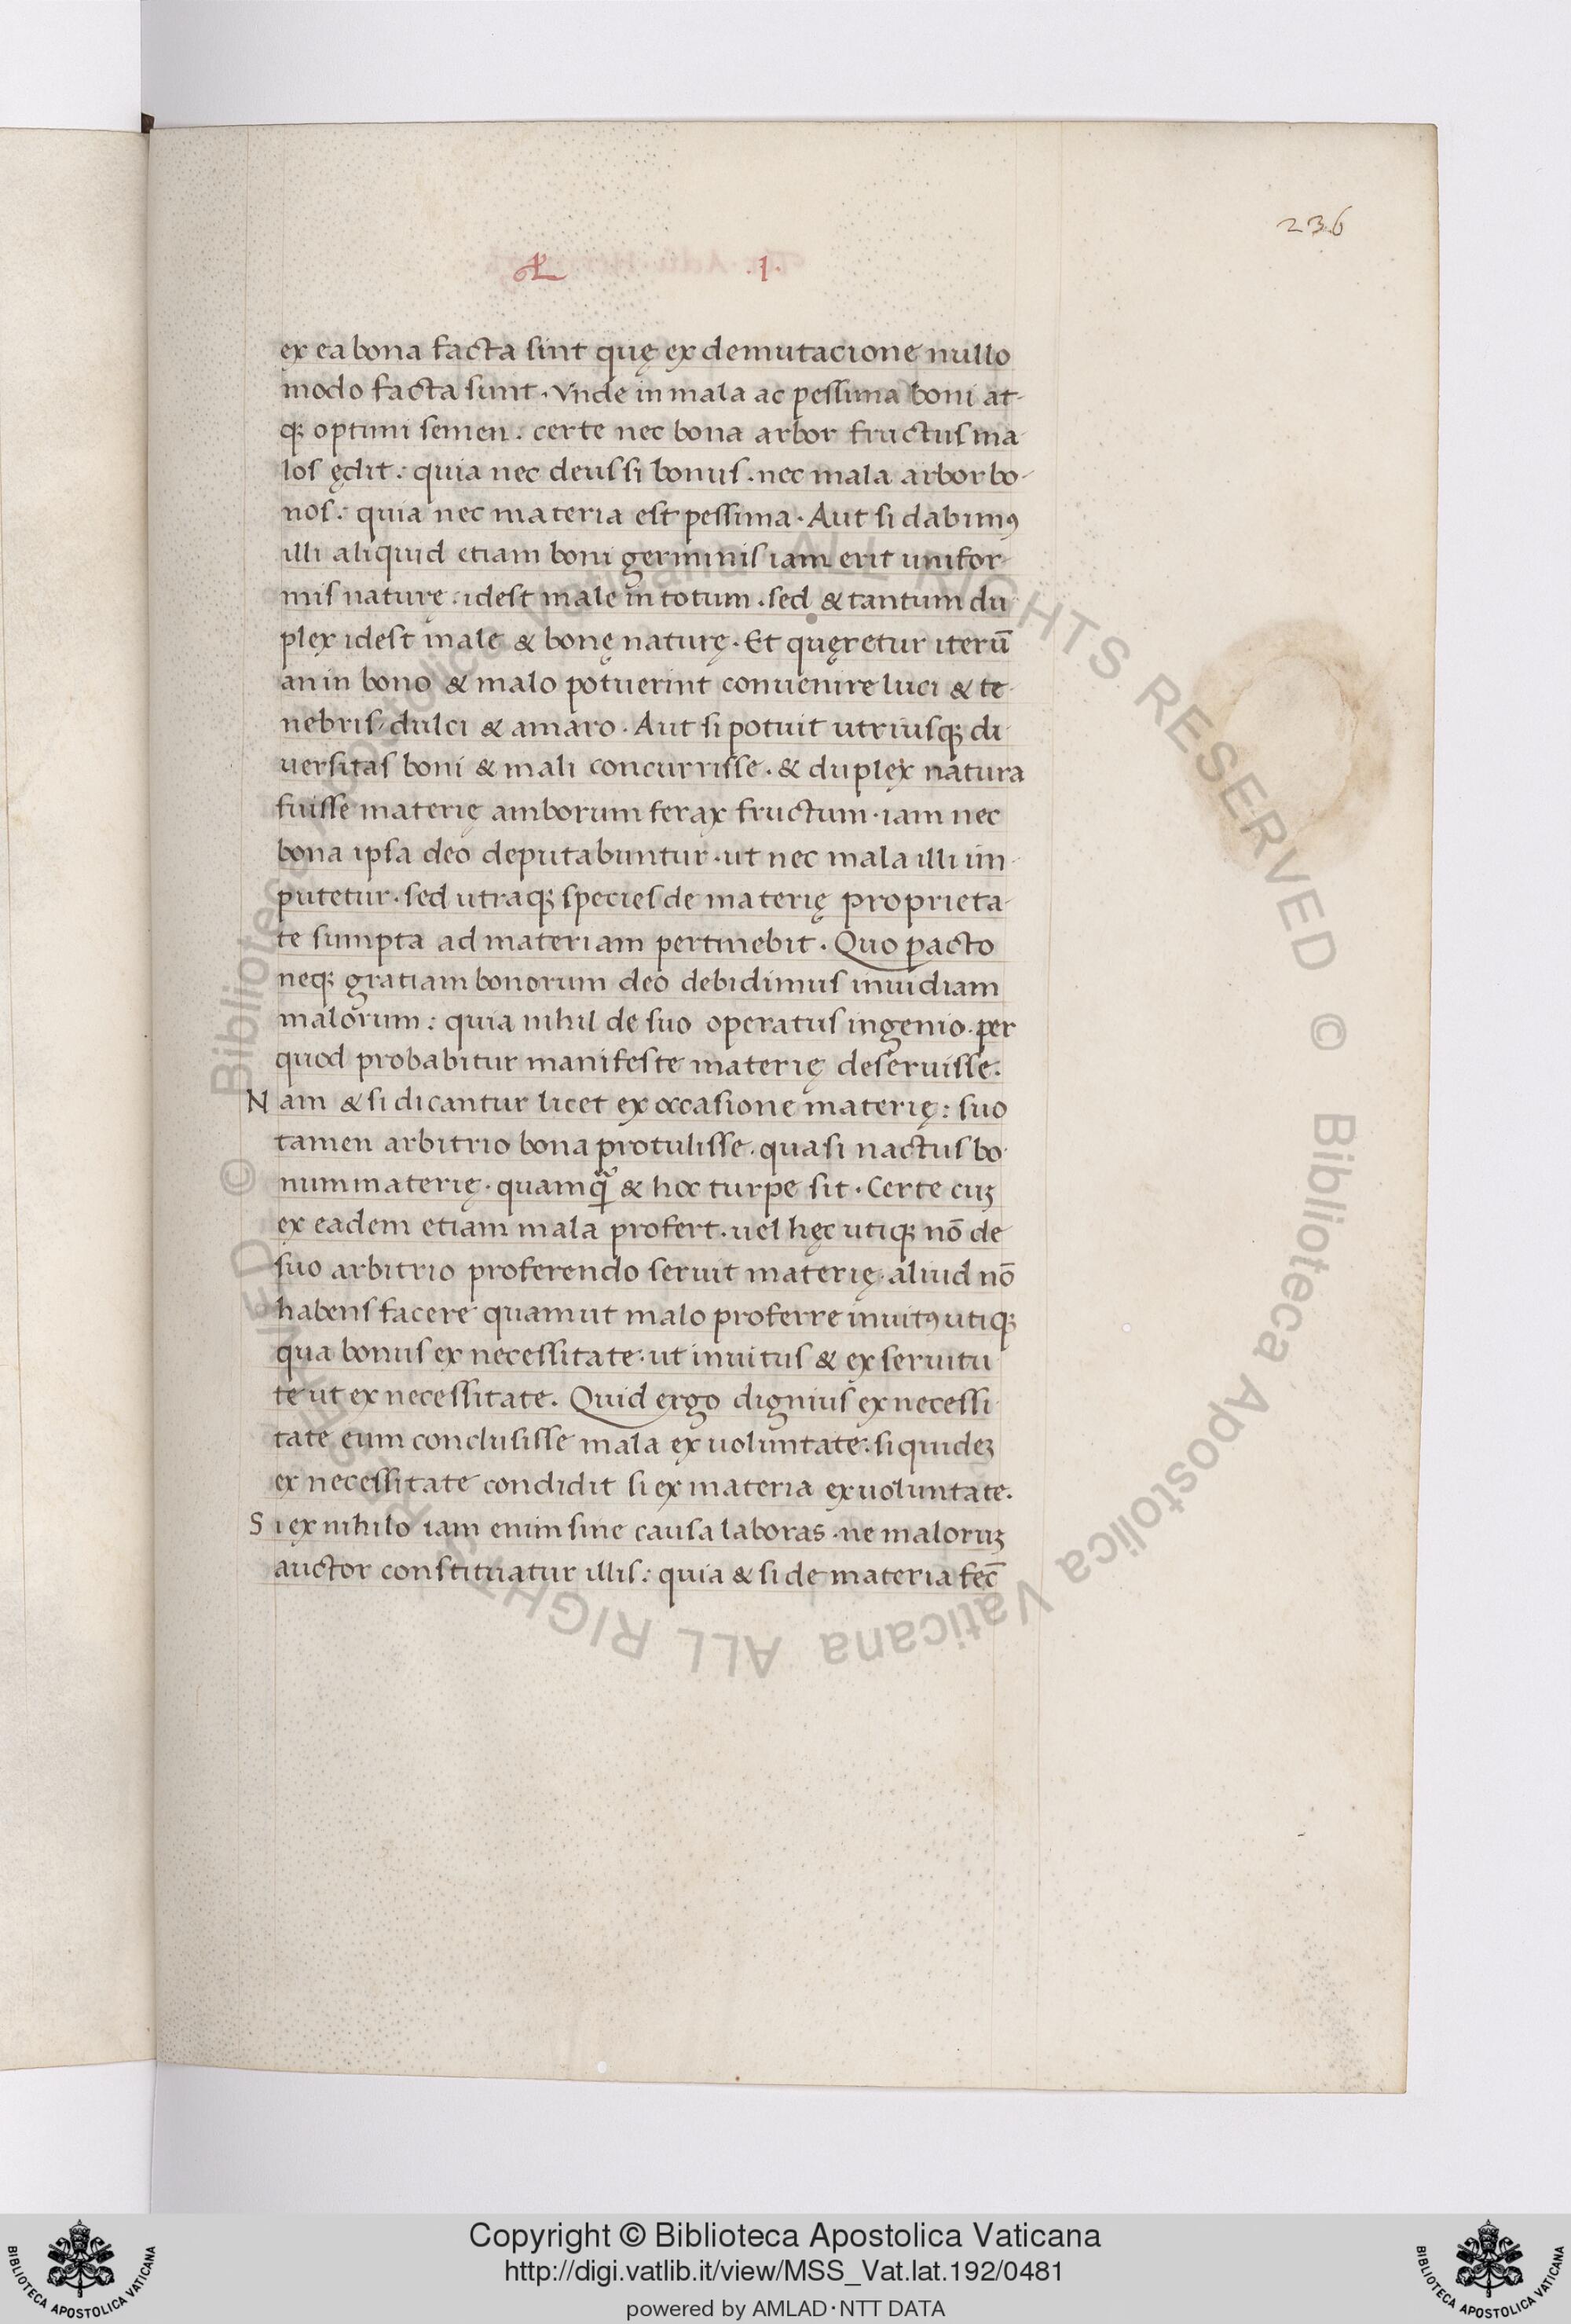 236
L .1.
ex ea bona facta sint quę ex demutacione nullo
modo facta sunt. Vnde in mala ac pessima boni at-
qꝫ optimi semen. certe nec bona arbor fructus ma
los ędit: quia nec deus si bonus. nec mala arbor bo-
nos: quia nec materia est pessima. Aut si dabimꝰ
illi aliquid etiam boni germinis iam erit unifor-
mis naturę. idest male in totum. sed & tantum du
plex idest male & bonę naturę. Et quęretur iterū
an in bono & malo potuerint conuenire luci & te-
nebris dulci & amaro. Aut si potuit utriusqꝫ di-
uersitas boni & mali concurrisse. & duplex natura
fuisse materię amborum ferax fructum. iam nec
bona ipsa deo deputabuntur. ut nec mala illi im-
putetur. sed utraqꝫ species de materię proprieta-
te sumpta ad materiam pertinebit. Quo ꝑacto
neqꝫ gratiam bonorum deo debidimus inuidiam
malorum: quia nihil de suo operatus ingenio. per
quod probabitur manifeste materię deseruisse.
Nam & si dicantur licet ex occasione materię: suo
tamen arbitrio bona protulisse. quasi nactus bo-
num materię. quamqͣ̃ & hoc turpe sit. Certe cuꝫ
ex eadem etiam mala profert. uel hęc utiqꝫ nō de
suo arbitrio proferendo seruit materię. aliud nō
habens facere quam ut malo proferre inuitꝰ utiqꝫ
qua bonus ex necessitate. ut inuitus & ex seruitu
te ut ex necessitate. Quid ergo dignius ex necessi-
tate eum conclusisse mala ex uoluntate. siquideꝫ
ex necessitate condidit si ex materia ex uoluntate.
Si ex nihilo iam enim sine causa laboras. ne maloruꝫ
auctor constituatur illis: quia & si de materia fec̄
© Biblioteca Apostolica Vaticana ALL RIGHTS RESERVED © Biblioteca Apostolica Vaticana ALL RIGHTS RESERVED
Copyright © Biblioteca Apostolica Vaticana
http://digi.vatlib.it/view/MSS_Vat.lat.192/0481
powered by AMLAD·NTT DATA
BIBLIOTECA APOSTOLICA VATICANA
BIBLIOTECA APOSTOLICA VATICANA